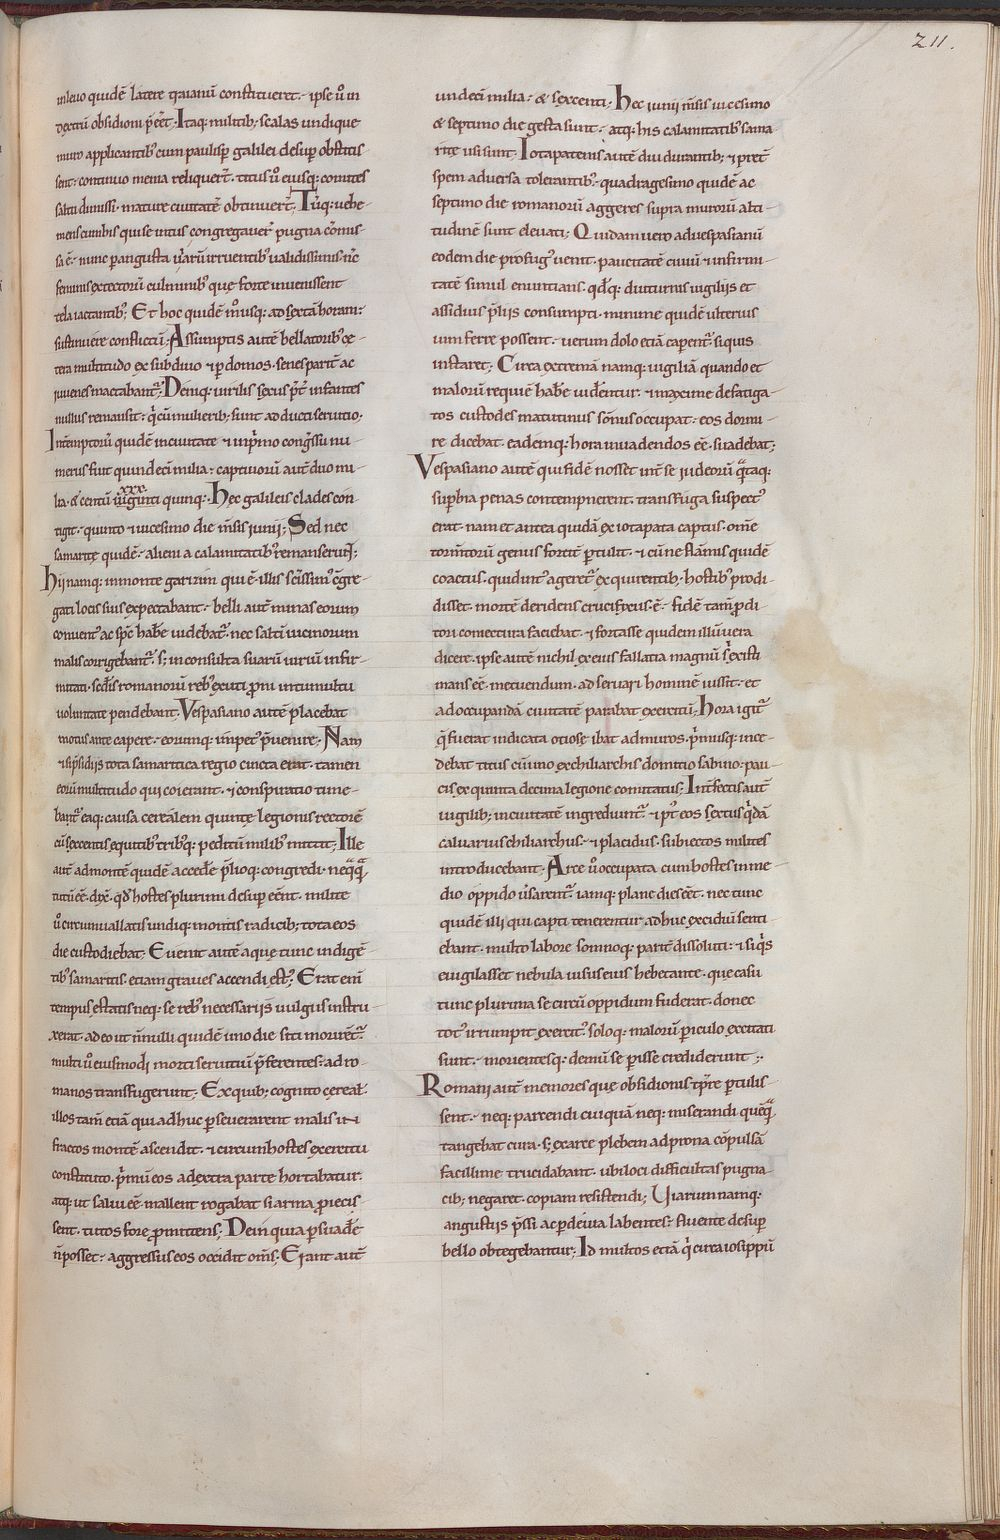 211.
inlevo quidē latere traianū constitueret. ipse ū in
dextrū obsidioni p̄eēt. Itaq; militib; scalas undique
muro applicantib; cum paulisp̱ galilei desup̱ obstitis-
sent. continuo menia reliquer̄t. titus ū eiusq; comites
saltu dimissi. mature civitatē obtinuer̄t. Tūq; vehe-
mens cum his qui se intus congregaver̄ pugna cōmis-
sa ē. nunc p̱ angusta viarū irruentib; validissimis nūc
feminis extectorū culminib; que forte invenissent
tela iactantib; Et hoc quidē m̊usq; ad sextā horam.
sustinuere conflictū. Assumptis autē bellatorib; ce-
tera multitudo ex subdivo & p̱ domos. senes parit̄ ac
iuvenes mactabant̄. Deniq; virilis sexus p̄t̄ infantes
nullus remansit. q̇ cū mulierib; sunt adducti servitio.
Int̄emptorū quidē in civitate & inp̱mo congr̄ssu nu-
merus fuit quindecī milia. captivorū autē duo mi-
xxx.
lia. & centū viginti quinq; Hec galileis clades con-
tigit. quinto & vicesimo die m̄sis iunij; Sed nec
samaritę quidē. alieni a calamitatib; remanserunt.
Hij namq; in monte garizim qui ē illis scīssim; cḡre-
gati locis suis expectabant. belli autē minas eorum
conventus ac spēs hab̄e videbat̄. nec saltū vicinorum
malis corrigebant̄. s; inconsulta suarū viriū infir-
mitati. se dēis romanorū reb; exuti p̱ni in tumultu
voluntate pendebant. Vespasiano autē placebat
motus ante capere. eorumq; impet; p̄venire. Nam
& si p̄sidijs tota samaritica regio cincta erat. tamen
eorū multitudo qui coierant. & conspiratio time-
bant̄. ea q; causa cerealem quintę legionis rectorē
cū sexcentis equitib; trib; q; peditū milib; mittit. Ille
autē ad montē quidē acced̄e p̄lioq; congredi. neq̄q̄
tutū eē dix̄. qd̄ hostes plurimi desup̱ eēnt. milite
ū circumvallatis undiq; montis radicib; tota eos
die custodiebat. Evenit autē aque tunc indigē-
tib; samaritis. etiam graves accendi est;. Erat enī
tempus estatis neq; se reb; necessariis vulgus instru-
xerat. adeo ut nōnulli quidē uno die siti morirēt̄.
multi ū eiusmodi morti servitiū p̄ferentes. ad ro-
manos transfugerunt; Ex quib; cognito cereal.
illos tam̄ etiā qui adhuc p̱severarent malis ee
fractos montē ascendit. & circum hostes exercitu
constituto. p̱mū eos ad extra parte hortabatur.
atq; ut salvi eē mallent rogabat si arma p̱iecis-
sent. tutos fore p̱mittens; Dein quia p̱suad̄e
ñ posset. aggressus eos occidit om̄s; Erant autē
undecī milia. & sexcenti. Hec iunij m̄sis vicesimo
& septimo die gesta sunt. atq; his calamitatib; sama-
ritę usi sunt. Iotapatenis autē diu durantib; & p̄t̄
spem adversa tolerantib; quadragesimo quidē ac
septimo die romanorū aggeres supra murorū alti-
tudinē sunt elevati; Quidam vero ad vespasianū
eodem die profug; venit. paucitatē civiū & infirmi-
tatē simul enuntians. qd̄q; diuturnis vigilijs et
assiduis p̄lijs consumpti. minime quidē ulterius
vim ferre possent. verum dolo etiā caperent̄ si quis
instaret; Circa extremā namq; vigiliā quando et
malorū requiē hab̄e vid̄entur. & maxime defatiga-
tos custodes matutinus sōnus occupat. eos dormi-
re dicebat. eademq; hora invadendos eē suadebat;
Vespasiano autē qui fidē nosset int̄ se iudeorū q̄taq;
sup̱bia penas contempnerent. transfuga suspect;
erat. nam et antea quidā ex iotapata captus. om̄e
torm̄torū genus forit̄ p̱tulit. & cū ne flāmis quidē
coactus. quid int; ageret̄ exquirentib; hostib; prodi-
disset. mortē deridens crucifixus. ē. fidē tam̄ p̱di-
tori coniectura faciebat. & fortasse quidem illū vera
dicere. ipse autē nichil ex eius fallatia magnū s; existi-
mans eē metuendum. adservari hominē iussit. et
ad occupandā civitatē parabat exercitū; Hora igit̄
q̄ fuerat indicata otiose ibat ad muros. p̱musq; ince-
debat titus cū uno ex chiliarchis domitio sabino. pau-
cis ex quinta decima legione comitatus; Int̄fectis autē
vigilib; in civitatē ingrediunt̄. & pt̄ eos sextus q̇dā
calvarius chiliarchus. & placidus. subiectos milites
introducebant. Arce ū occupata cum hostes in me-
dio oppido v̄sarent̄. iamq; plane dies eēt. nec tunc
quidē illi qui capti tenerentur adhuc excidiū senti-
ebant. multo labore somnoq; parit̄ dissoluti. & si q̇s
evigilasset nebula visus eius hebetante. que casu
tunc plurima se circū oppidum fuderat. donec
tot; irrumpit exercit; soloq; malorū p̱iculo excitati
sunt. morientesq; demū se p̱isse crediderunt.
Romani autē memores que obsidionis tp̄re p̱tulis-
sent. neq; parcendi cuiquā neq; miserandi quēq̄
tangebat cura. s; ex arce plebem ad prona cōpulsā
facillime trucidabant. ubi loci difficultas pugna-
cib; negaret copiam resistendi; Viarum namq;
angustijs p̱ssi ac p̱ devia labentes. fluente desup̱
bello obtegebantur; Id multos etiā q̇ circa iosippū